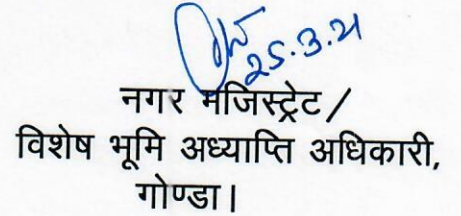 25.3.21
नगर मजिस्ट्रेट/
विशेष भूमि अध्याप्ति अधिकारी,
गोण्डा।